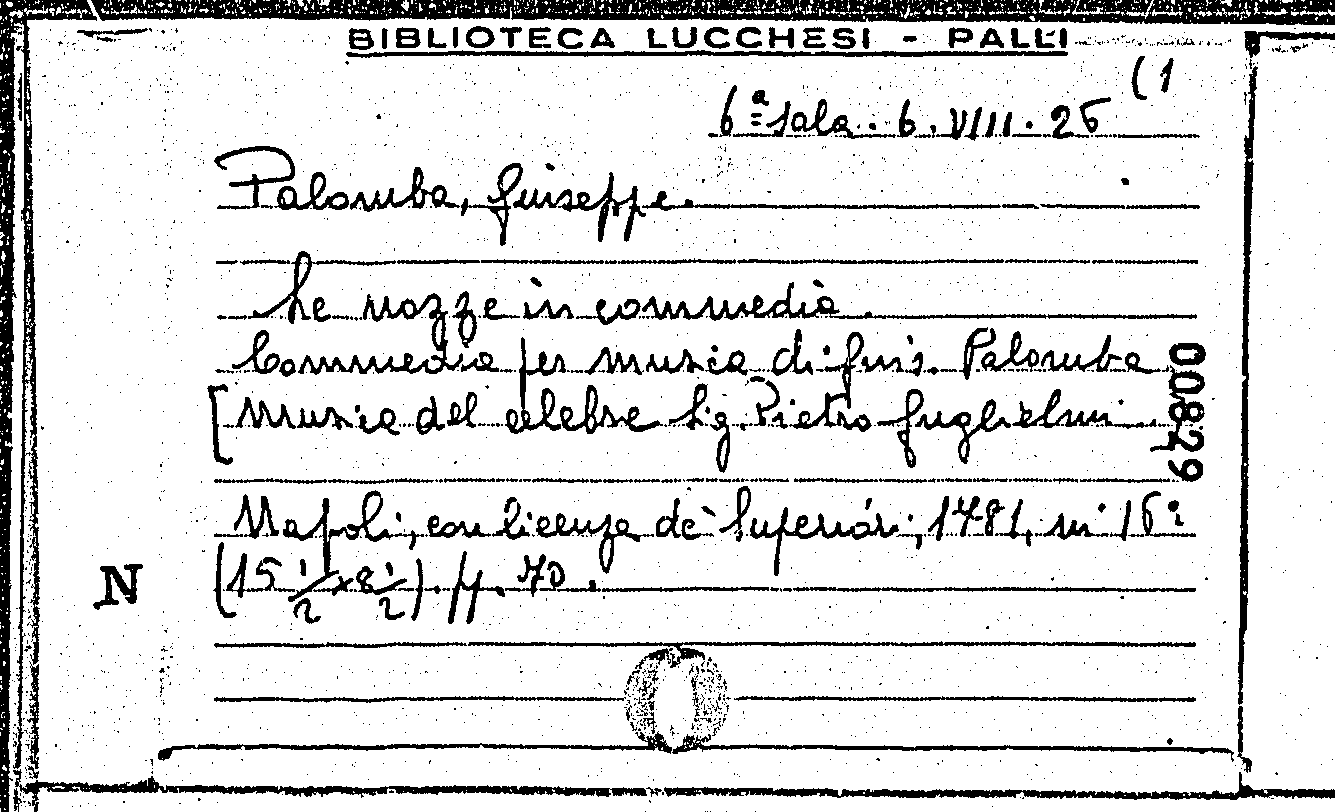 BIBLIOTECA LUCCHESI - PALLI
(1
6ª sala. 6. VIII. 26
Palomba, Giuseppe.
Le nozze in commedia.
Commedia per musica di Gius. Palomba
[Musica del celebre Sig. Pietro Guglielmi
00829
Napoli, con licenza de' Superiori, 1781, in 16º
(15 1/2 x 8 1/2). pp. 70.
N